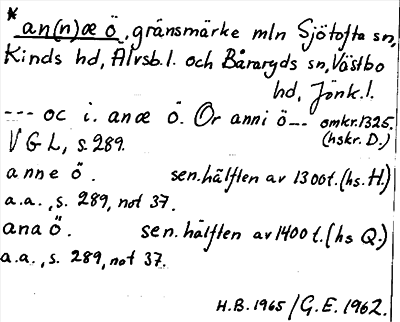 * an(n)æ ö, gränsmärke mln Sjötofta sn,
Kinds hd, Älvsb.l. och Båraryds sn, Västbo
hd, Jönk.l.
--- oc i. anæ ö. Or anni ö--- omkr. 1325.
(hskr. D.)
VGL, s. 289.
anne ö. sen. hälften av 1300t. (hs. H.)
a.a., s. 289, not 37.
ana ö. sen. hälften av 1400 t. (hs Q.)
a.a., s. 289, not 37.
H.B. 1965 / G.E. 1962.